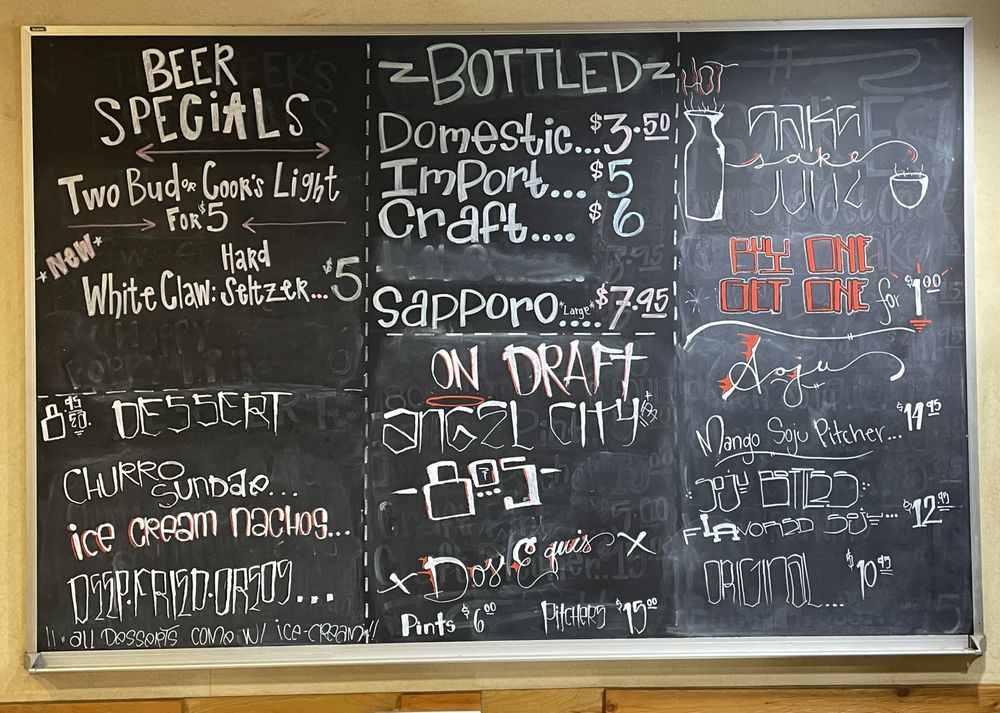 BEER
SPECiALS
Two Bud or Coor's Light
FOR $5
*New*
Hard
White Claw: Seltzer... $5
DESSERT
CHURRO
SUNDAE...
ice cream nachos...
DEEP.FRIED.OREOS...
all DESSERTS COME W/ ICE-CREAM!!
BOTTLED
Domestic...$3.50
ImPort... $5
Craft.... $6
SAPPORO *Large* .... $7.95
ON DRAFT
ANGEL CITY
Dos Equis
Pints $6.00
PITCHERS $15.00
HOT
SAKE
sake
BUY ONE
GET ONE for $1.00
Soju
Mango Soju Pitcher... $14.95
SOJU BOTTLES:
FLAVORED SOJU... $12.95
ORIGINAL... $10.95